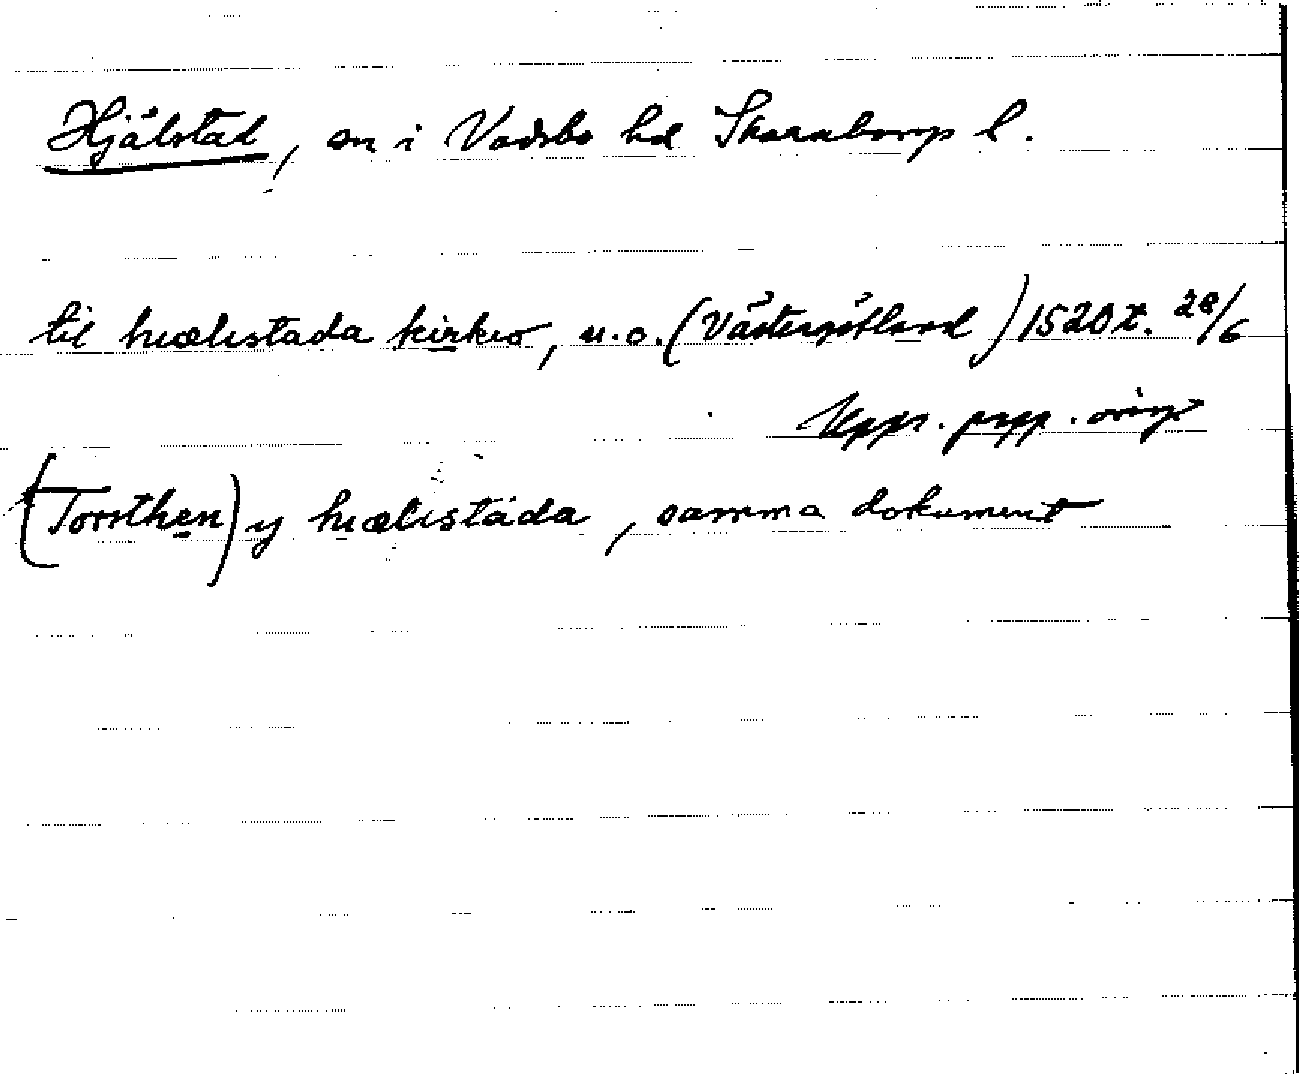 Hjälstad, sn i Vadsbo hd Skaraborgs l.
til hiælistada kirkio, u.o. (Västergötland) 1520 t. 28/6
Upps. papp. orig
(Torsthen) y hiælistada, samma dokument